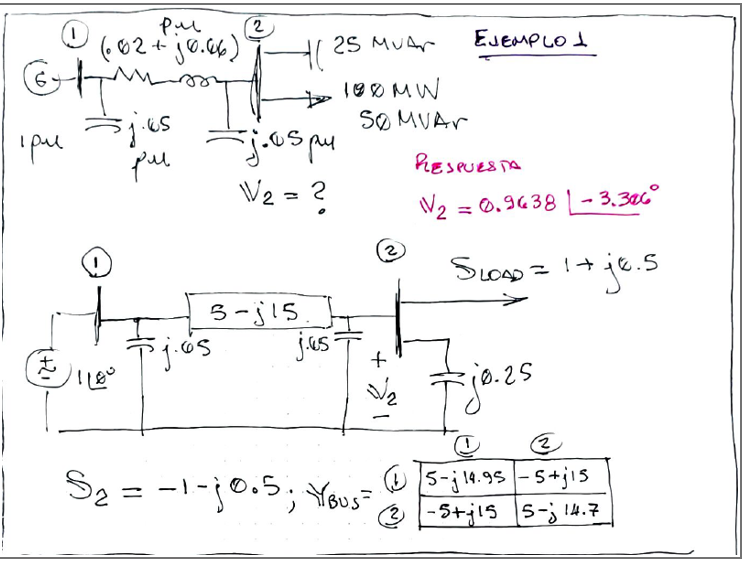 EJEMPLO 1
① ②
pu
(.02 + j0.06)
G
25 MVAr
100 MW
50 MVAr
1 pu
j.05
pu
j.05 pu
V2 = ?
RESPUESTA
V2 = 0.9638 |-3.306°
① ②
SLOAD = 1 + j0.5
5-j15
j.05
j.05
1|0°
+
V2
-
j0.25
S2 = -1-j0.5; YBUS =
① ②
① 5-j14.95 -5+j15
② -5+j15 5-j14.7